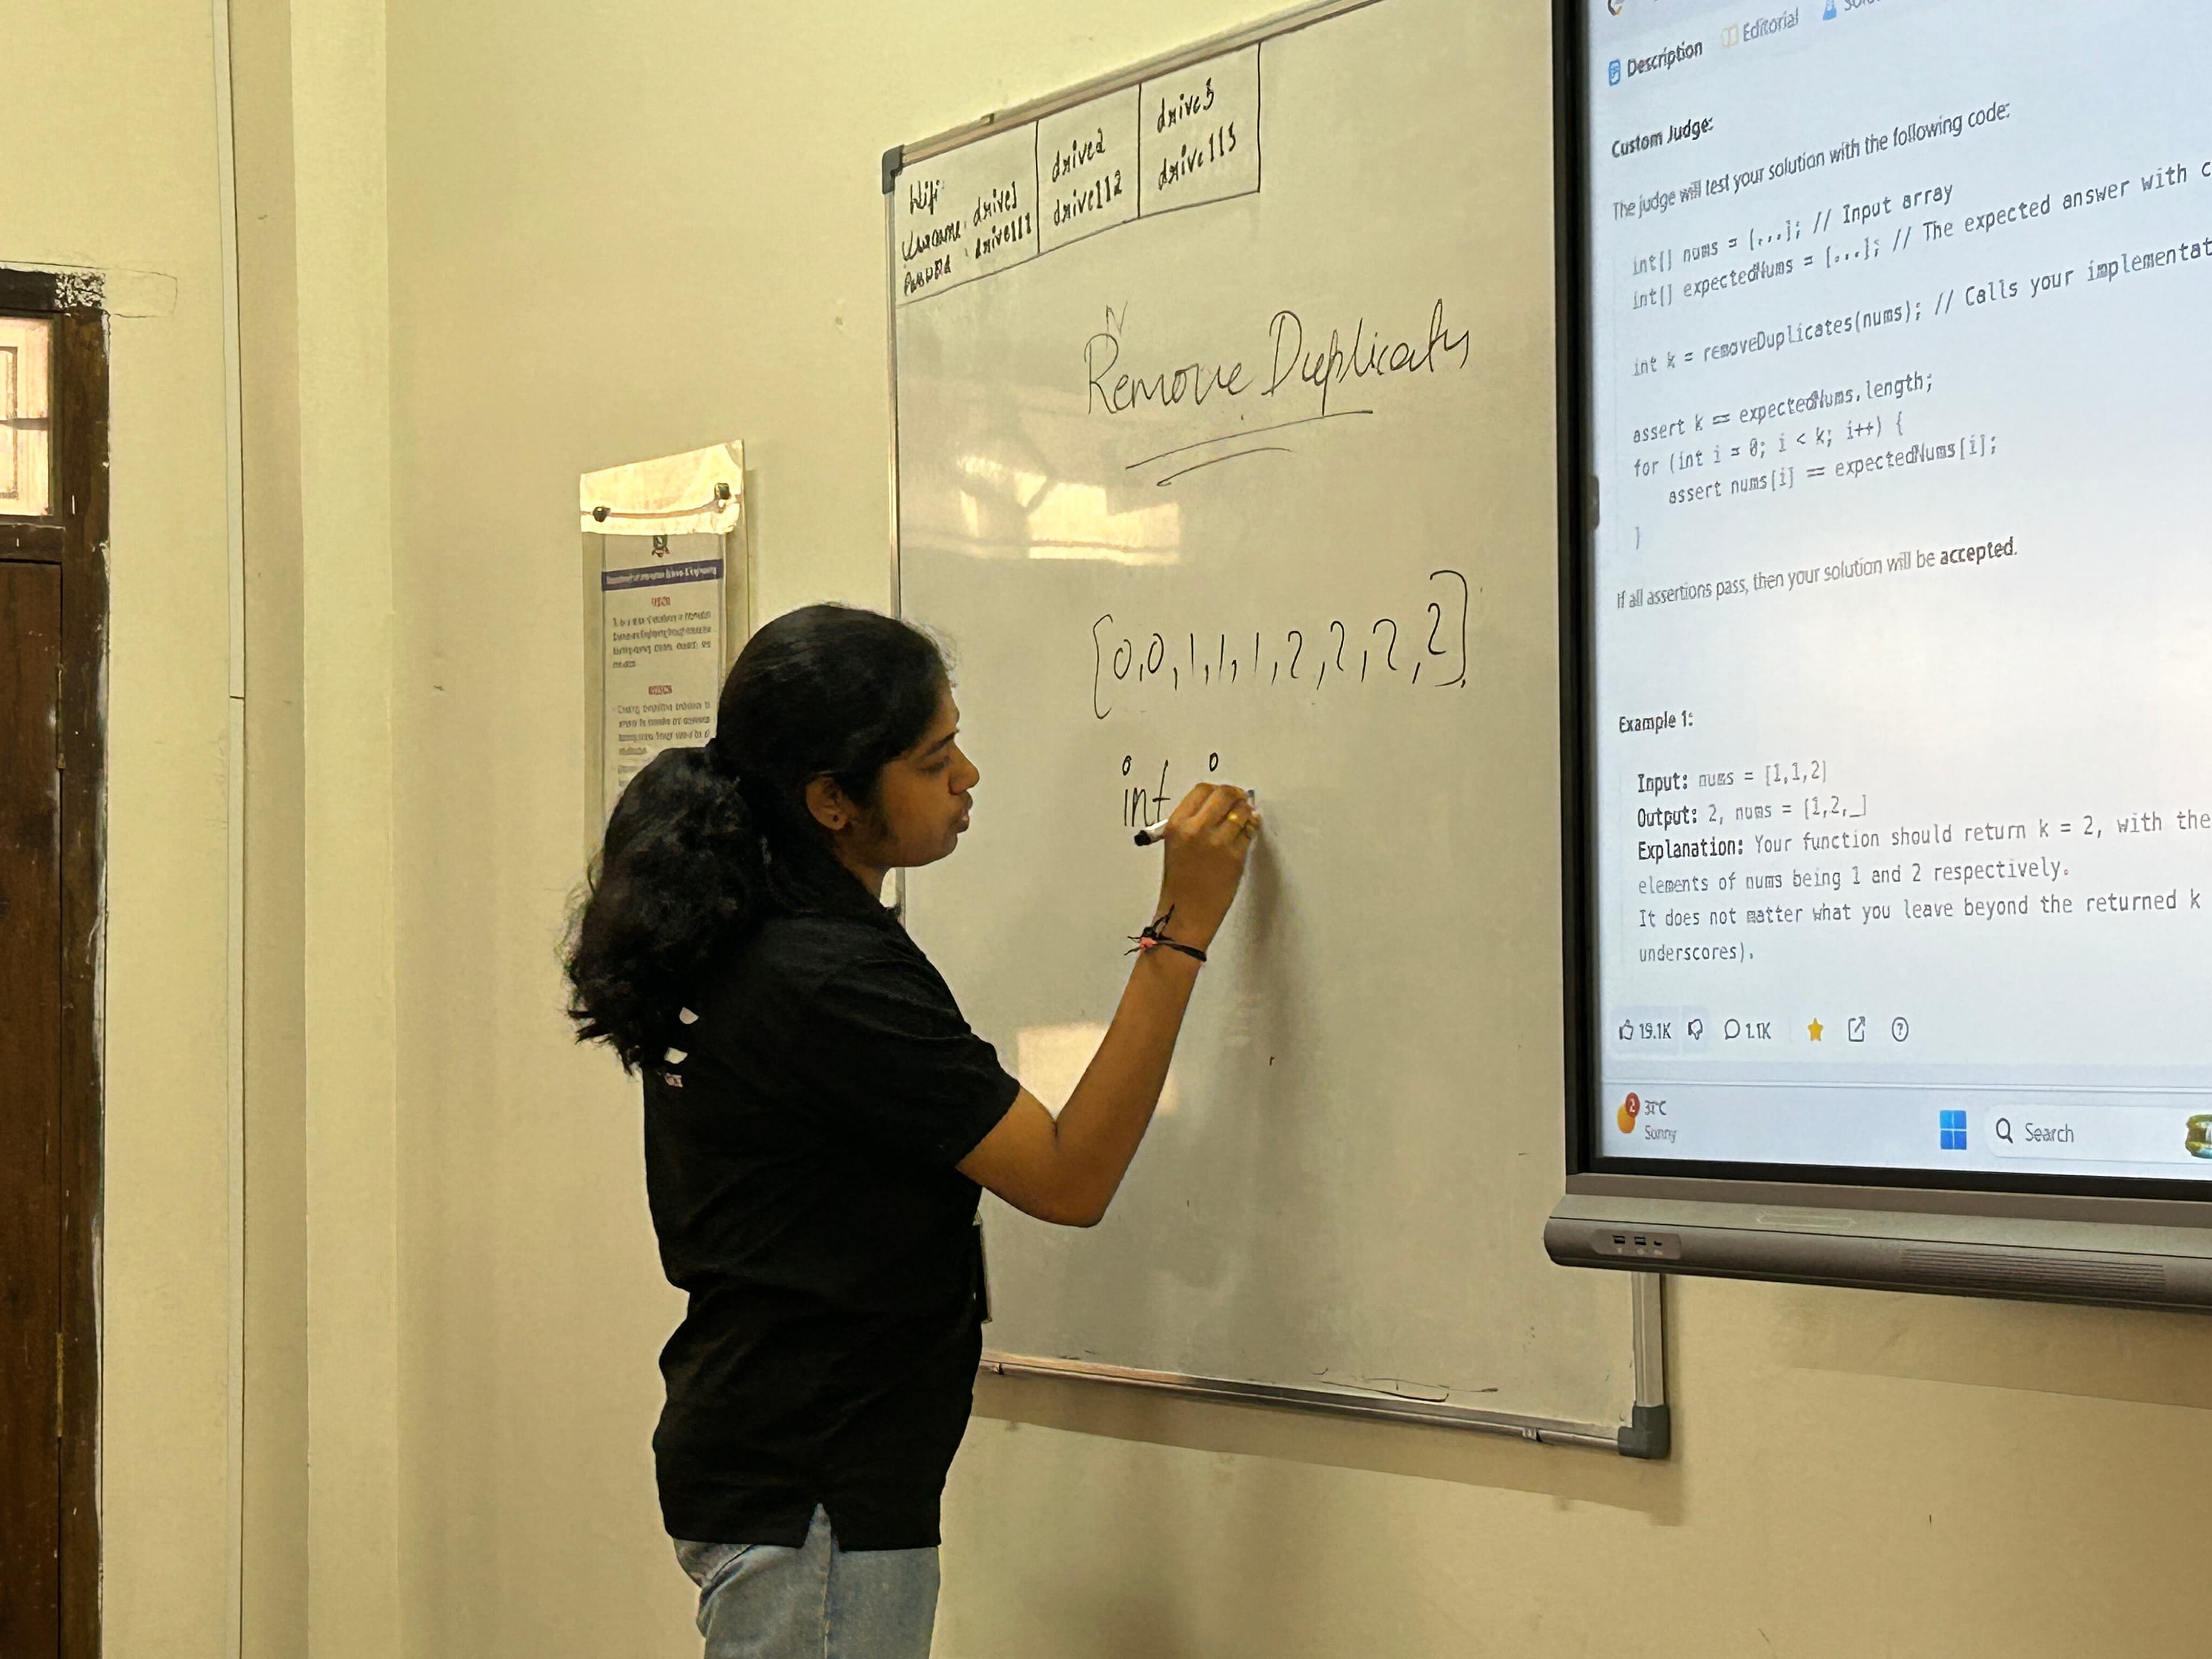 Wifi
Username : drive1
Password : drive111
drive2
drive112
drive3
drive113
Remove Duplicates
[0,0,1,1,1,2,2,2,2]
int
Description
Editorial
Custom Judge:
The judge will test your solution with the following code:
int[] nums = [...]; // Input array
int[] expectedNums = [...]; // The expected answer with c
int k = removeDuplicates(nums); // Calls your implementat
assert k == expectedNums.length;
for (int i = 0; i < k; i++) {
assert nums[i] == expectedNums[i];
}
If all assertions pass, then your solution will be accepted.
Example 1:
Input: nums = [1,1,2]
Output: 2, nums = [1,2,_]
Explanation: Your function should return k = 2, with the
elements of nums being 1 and 2 respectively.
It does not matter what you leave beyond the returned k
underscores).
19.1K
1.1K
2
Sunny
Search